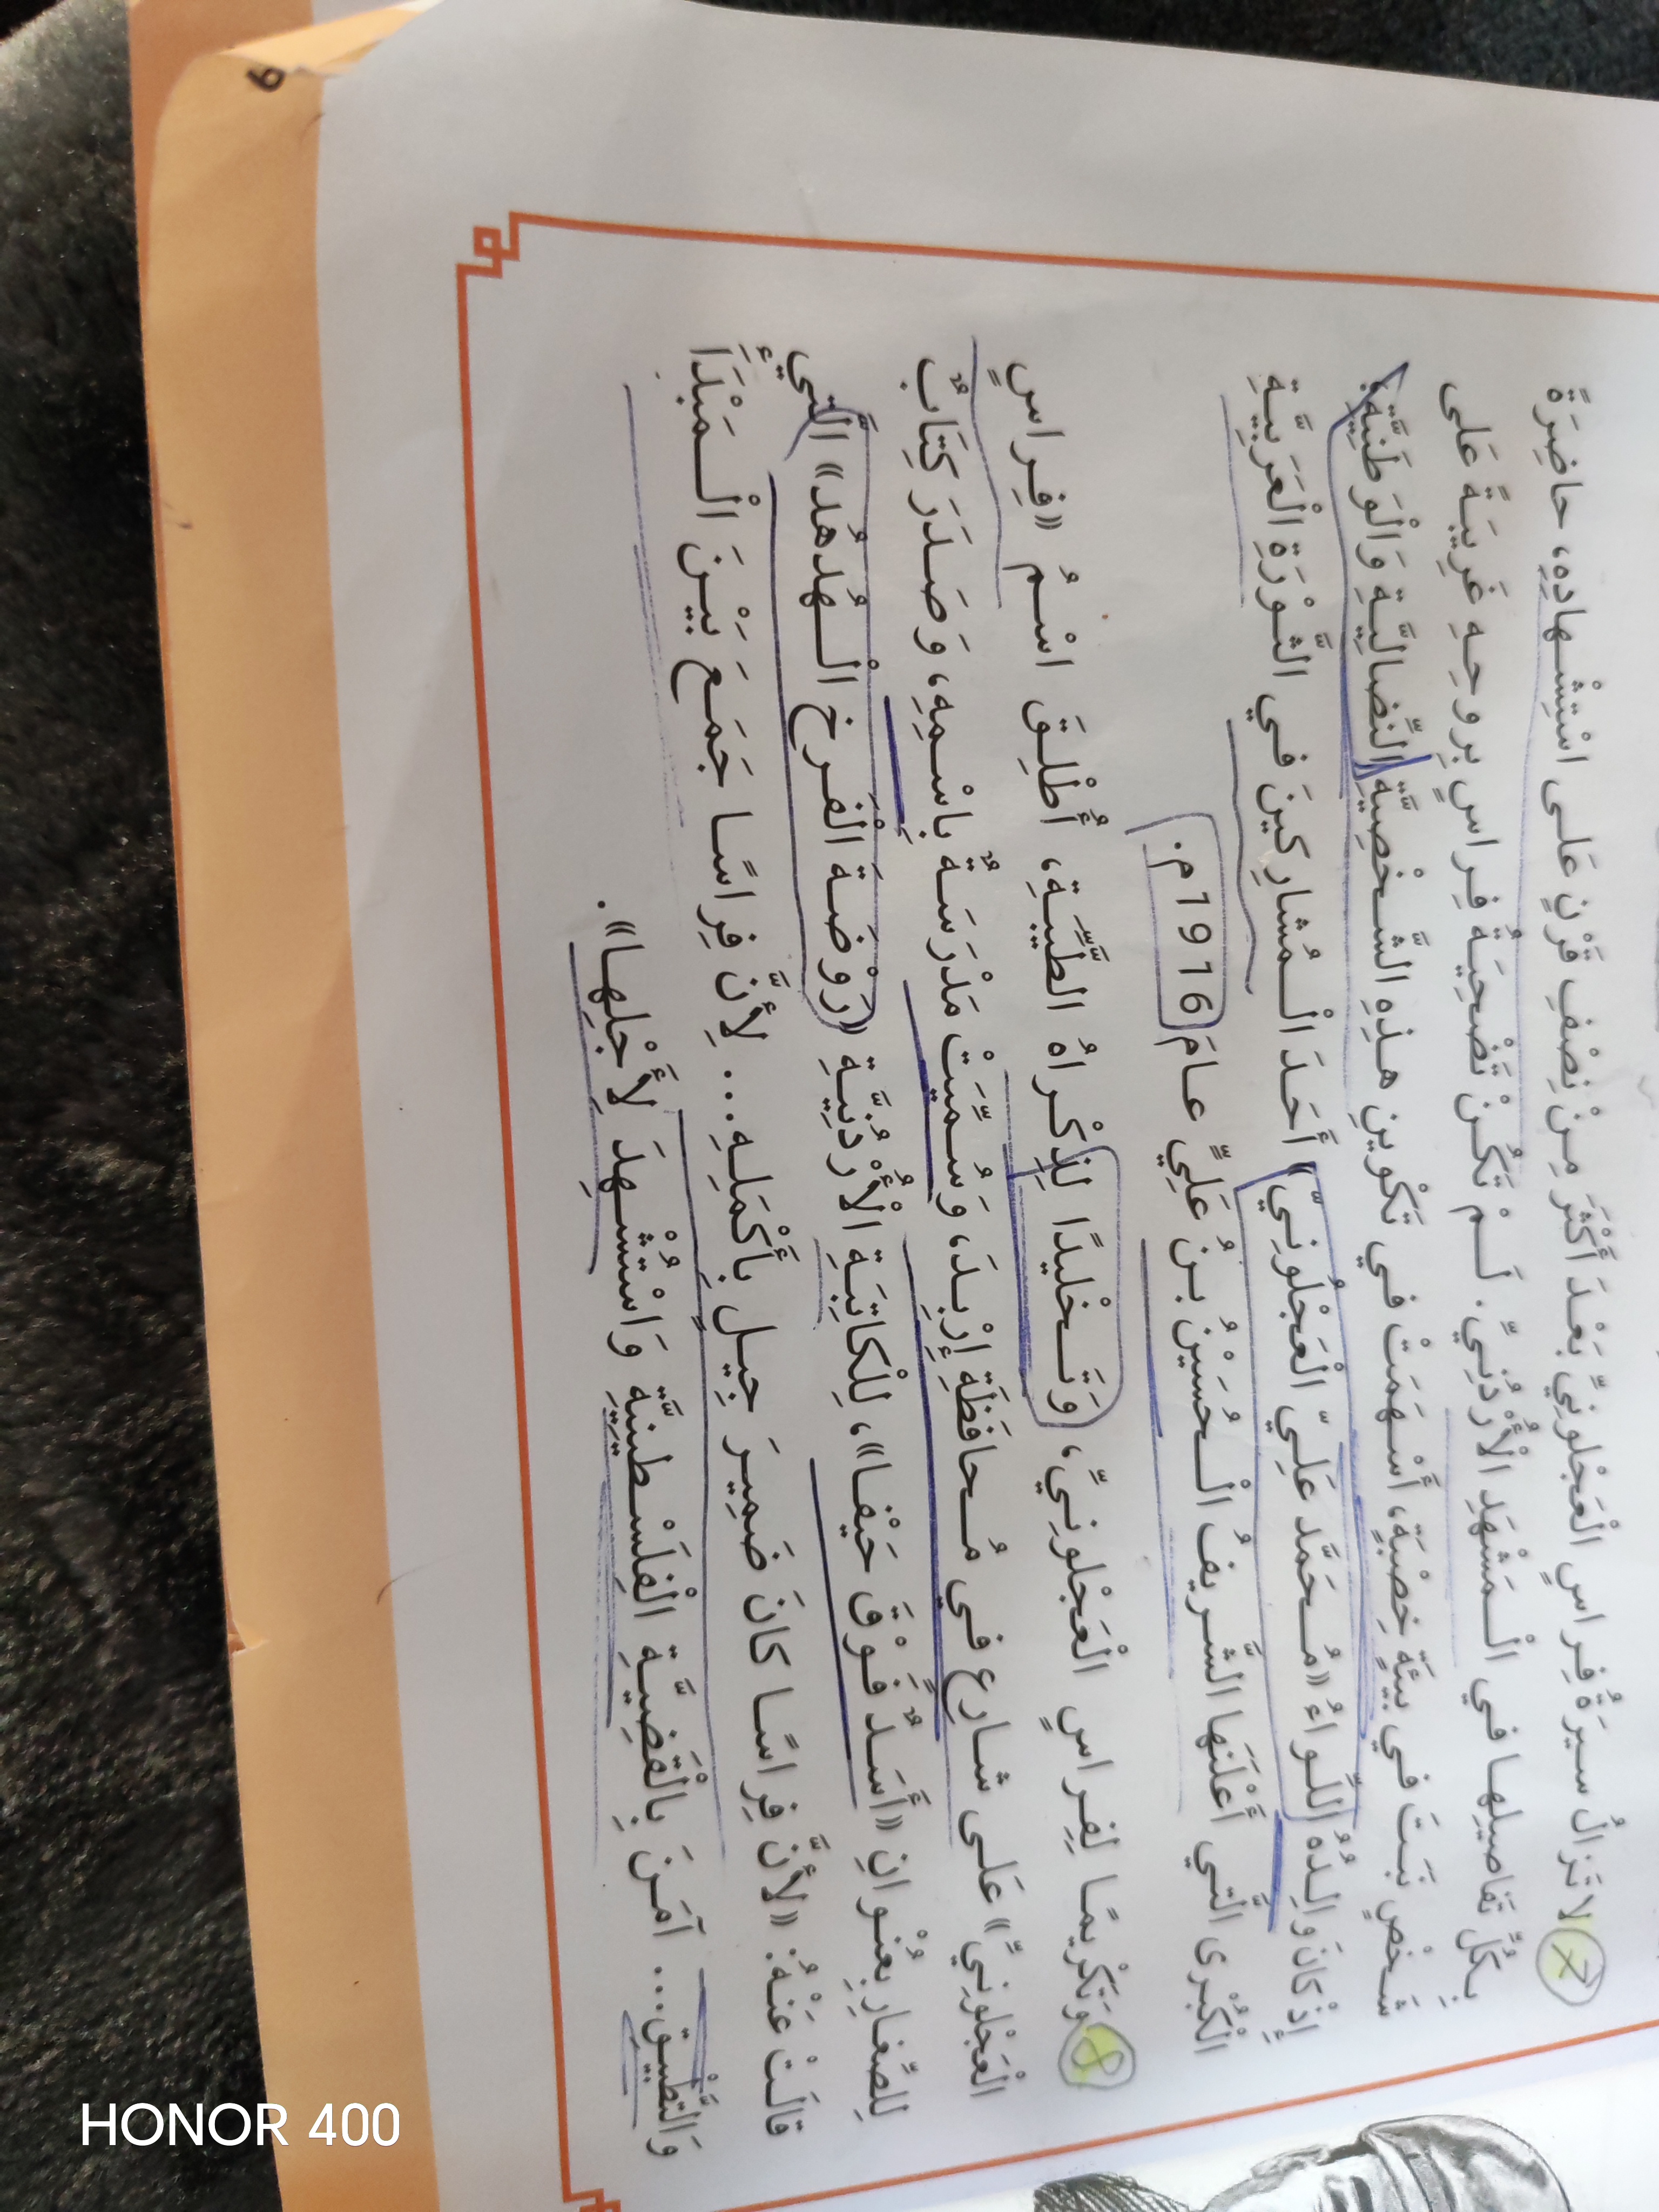 7 لا تَزالُ سيرَةُ فِراسٍ الْعَجْلونِيِّ بَعْدَ أَكْثَرَ مِنْ نِصْفِ قَرْنٍ عَلى اسْتِشْهادِهِ، حاضِرَةً
بِكُلِّ تَفاصيلِها في الْمَشْهَدِ الْأُرْدُنِيِّ. لَمْ تَكُنْ تَضْحِيَةُ فِراسٍ بِروحِهِ غَريبَةً عَلى
شَخْصٍ نَبَتَ في بيئَةٍ خِصْبَةٍ، أَسْهَمَتْ في تَكْوينِ هذِهِ الشَّخْصِيَّةِ النِّضالِيَّةِ وَالْوَطَنِيَّةِ؛
إِذْ كانَ والِدُهُ اللِّواءُ «مُحَمَّد عَلِيّ الْعَجْلُونِيّ» أَحَدَ الْمُشارِكينَ في الثَّوْرَةِ الْعَرَبِيَّةِ
الْكُبْرى الَّتي أَعْلَنَها الشَّريفُ الْحُسَيْنُ بنُ عَلِيٍّ عامَ 1916م.
8 وَتَكْريمًا لِفِراسٍ الْعَجْلونِيِّ، وَتَخْليدًا لِذِكْراهُ الطَّيِّبَةِ، أُطْلِقَ اسْمُ «فِراسٍ
الْعَجْلونِيِّ» عَلى شارِعٍ في مُحافَظَةِ إِرْبِدَ، وَسُمِّيَتْ مَدْرَسَةٌ بِاسْمِهِ، وَصَدَرَ كِتابٌ
لِلصِّغارِ بِعُنْوانِ «أَسَدٌ فَوْقَ حَيْفا»، لِلْكاتِبَةِ الْأُرْدُنِيَّةِ «رَوْضَة الْفَرخ الْهُدهُد» الَّتي
قالَتْ عَنْهُ: «لِأَنَّ فِراسًا كانَ ضَميرَ جيلٍ بِأَكْمَلِهِ... لِأَنَّ فِراسًا جَمَعَ بَيْنَ الْمَبْدَأِ
وَالتَّطْبيقِ... آمَنَ بِالْقَضِيَّةِ الْفِلَسْطينِيَّةِ وَاسْتُشْهِدَ لِأَجْلِها».
9
HONOR 400